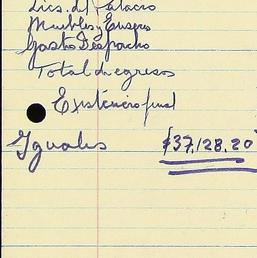 Lics. del Palacio
Muebles y Enseres
Gasto Despacho
Total de egresos
Existencia final
Iguales $37,128.20